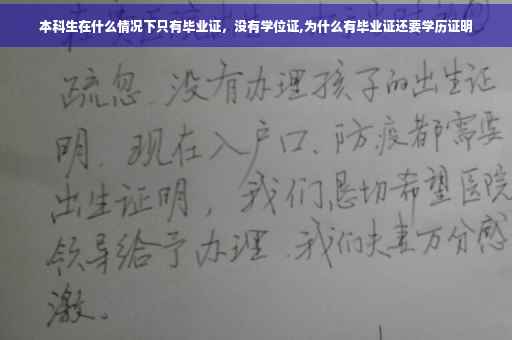 本科生在什么情况下只有毕业证，没有学位证,为什么有毕业证还要学历证明
疏忽、没有办理孩子的出生证
明、现在入户口、防疫都需要
出生证明，我们恳切希望医院
领导给予办理、我们夫妻万分感
激。